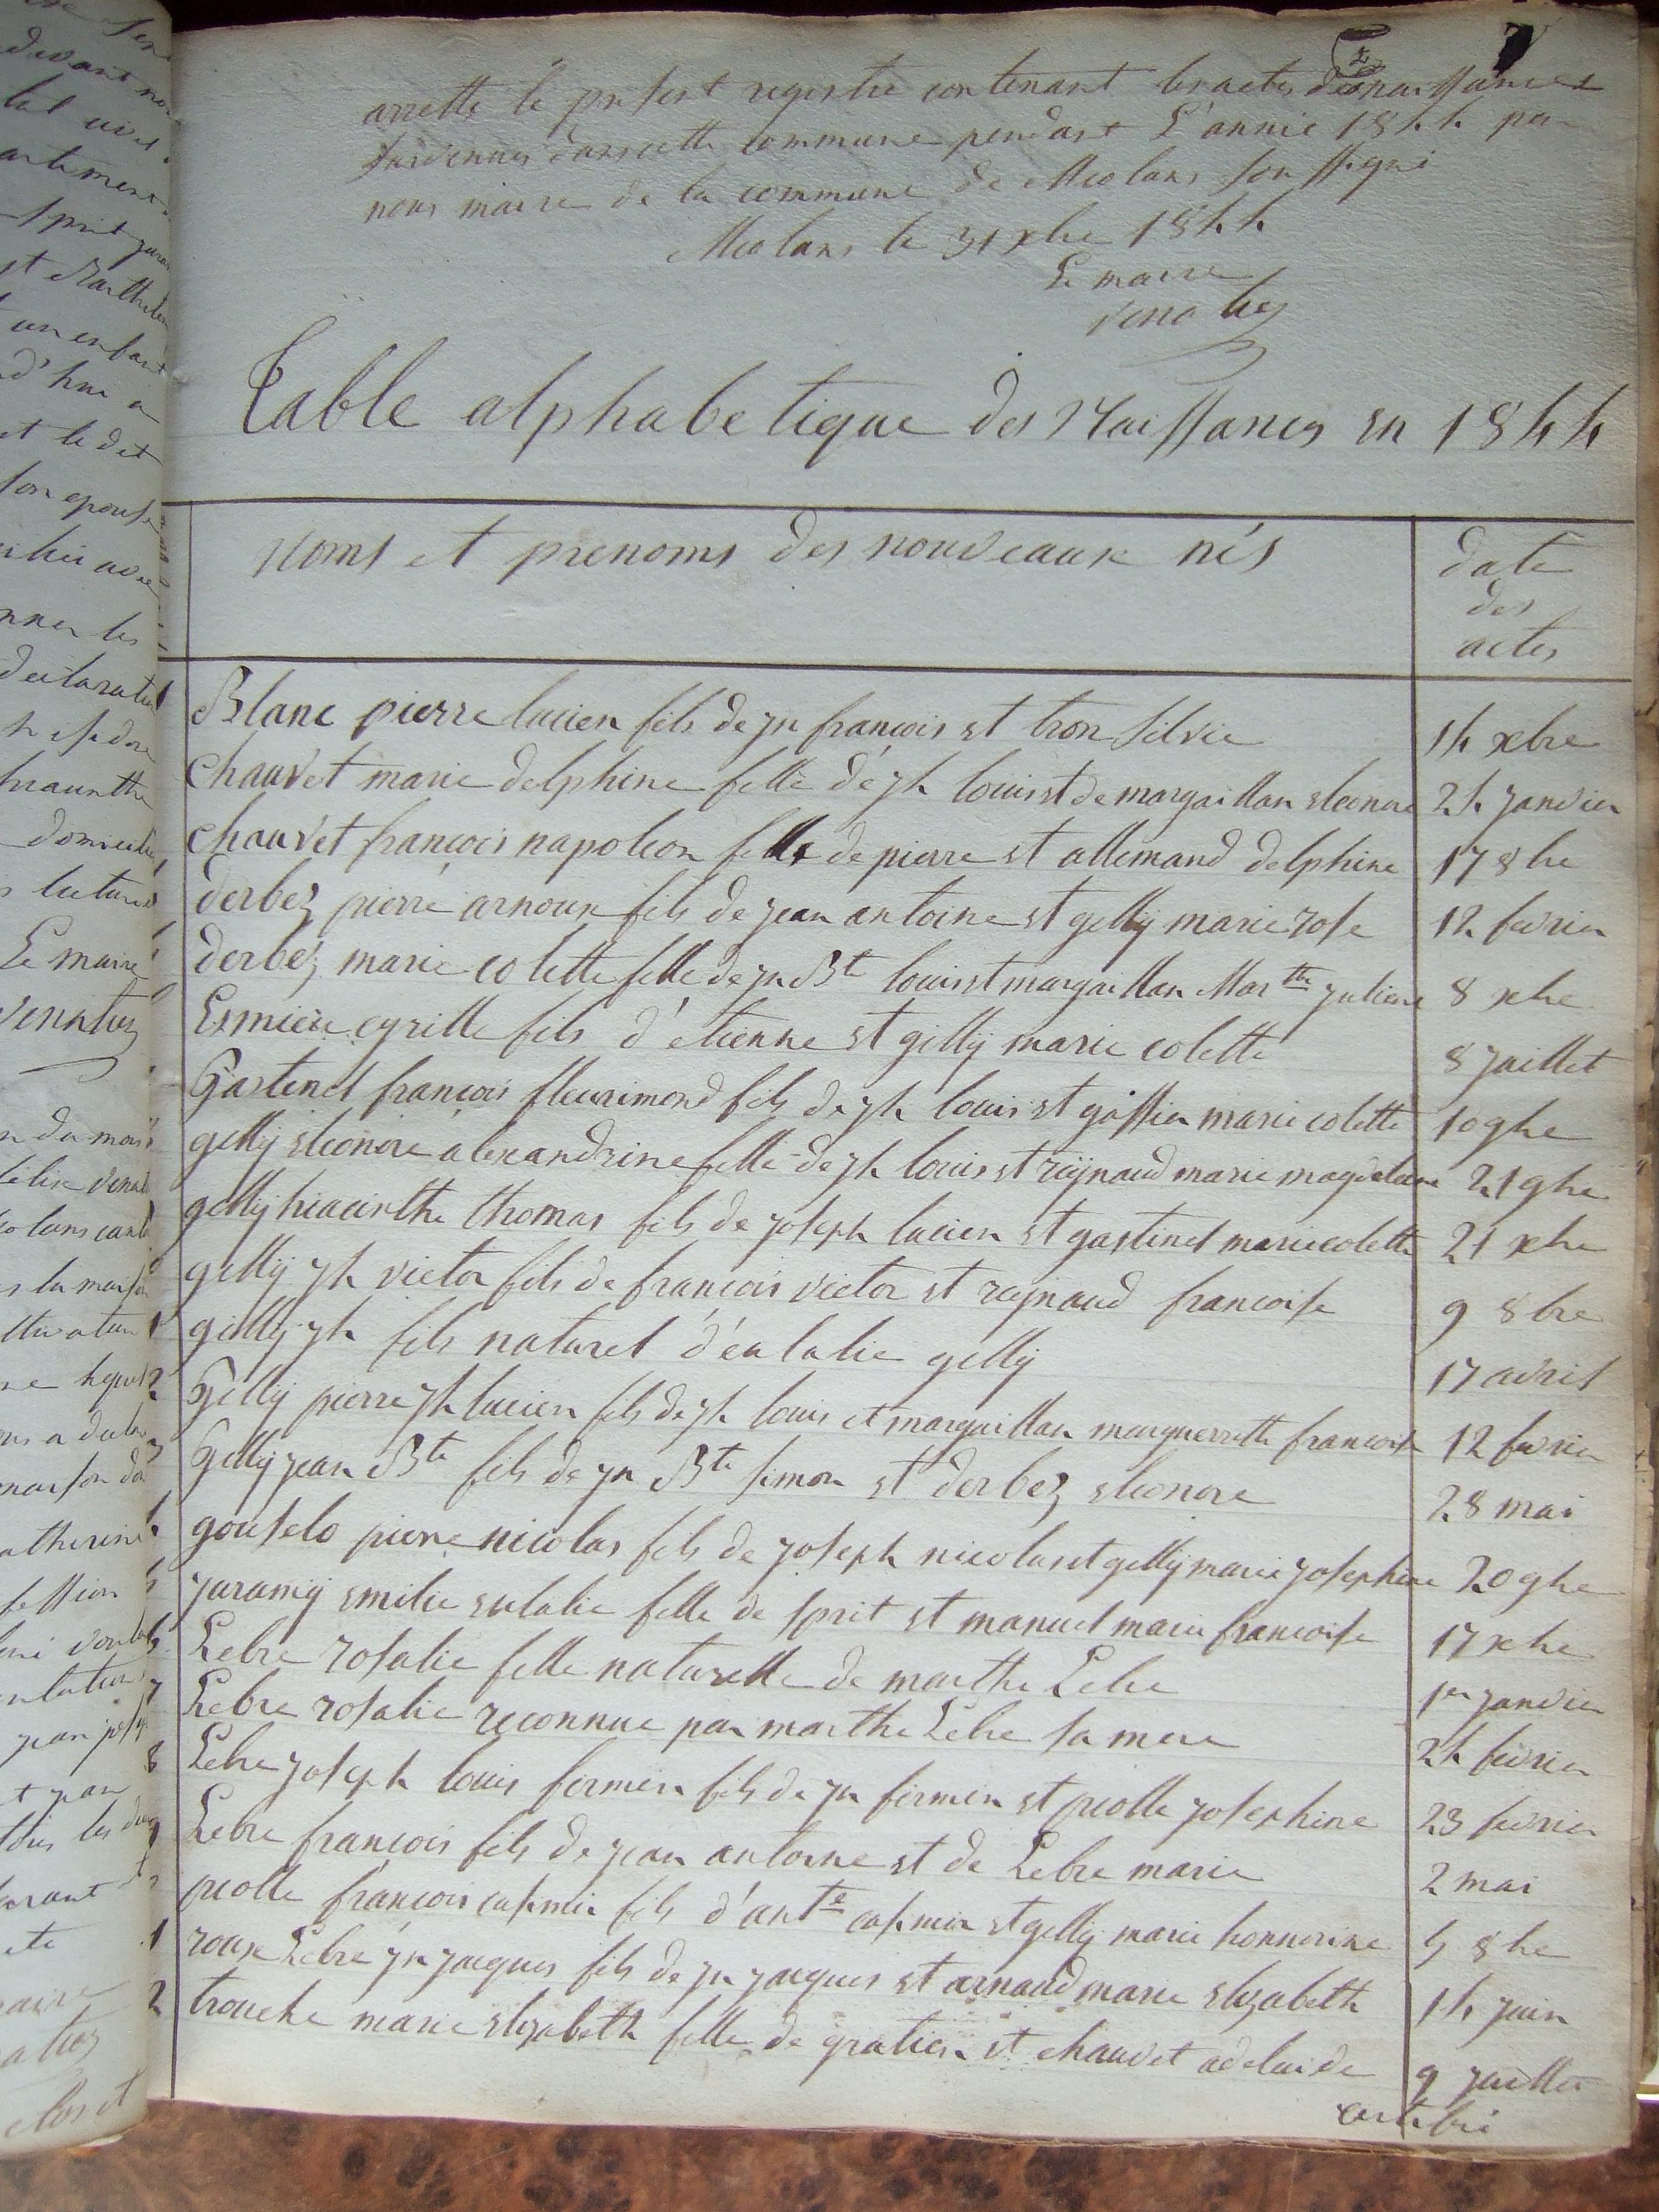 arrette le present registre contenant les actes de naissances
survenues dans cette commune pendant L'année 1844 par
nous maire de la commune de Meolans soussigné
Meolans le 31 xbre 1844
Le maire
Table alphabetique des Naissances en 1844
noms et prenoms des nouveaux nés
date
des
actes
Blanc pierre lucien fils de jn françois et tron silvie 14 xbre
Chauvet marie delphine fille de jh louis et de margaillan eleonore 24 janvier
Chauvet françois napoleon fils de pierre et allemand delphine 17 8bre
derbez pierre arnoux fils de jean antoine et gelly marie rose 12 fevrier
derbez marie colette fille de jn Bte louis et margaillan Marthe juliene 8 xbre
Esmieu cyrille fils d'etienne et gilly marie colette 8 juillet
Gastinel françois fleurimond fils de jh louis et gassier marie colette 10 9bre
gelly eleonore alexandrine fille de jh louis et reynaud marie magdelaine 21 9bre
gelly hiacinthe thomas fils de joseph lucien et gastinel marie colette 21 xbre
gelly jh victor fils de françois victor et reynaud francoise 9 8bre
gelly jh fils naturel d'eulalie gelly 17 avril
Gelly pierre jh lucien fils de jh louis et margaillan marguerritte francoise 12 fevrier
Gelly jean Bte fils de jn Bte simon et derbez eleonore 28 mai
gouselo pierre nicolas fils de joseph nicolas et gelly marie josephine 20 9bre
juramy emilie eulalie fille de sprit et manuel marie francoise 17 xbre
Lebre rosalie fille naturelle de marthe Lebre 1er janvier
Lebre rosalie reconnue par marthe Lebre sa mere 24 fevrier
Lebre joseph louis firmin fils de jn firmin et piolle josephine 23 fevrier
Lebre françois fils de jean antoine et de Lebre marie 2 mai
piolle françois casimir fils d'ante casimir et gelly marie honnorine 5 8bre
roux Lebre jn jacques fils de jn jacques et arnaud marie elizabeth 14 juin
trouche marie elizabeth fille de gratien et chauvet adelaide 9 juillet